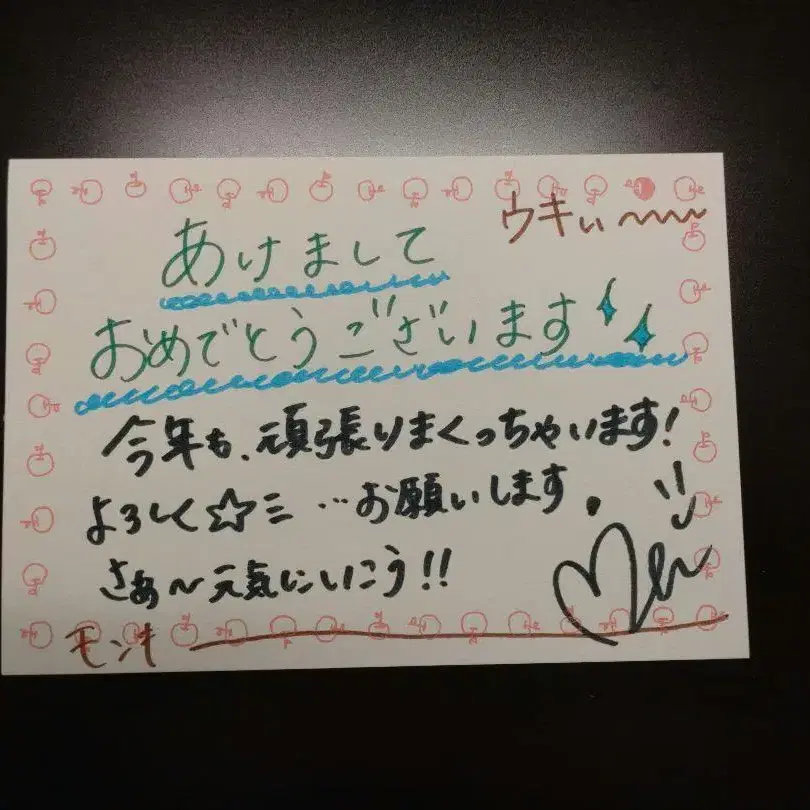 ウキぃ〜〜〜
あけまして
おめでとうございます
今年も、頑張りまくっちゃいます!
よろしく☆ミ …お願いします。
さぁ〜元気にいこう!!
モンキー